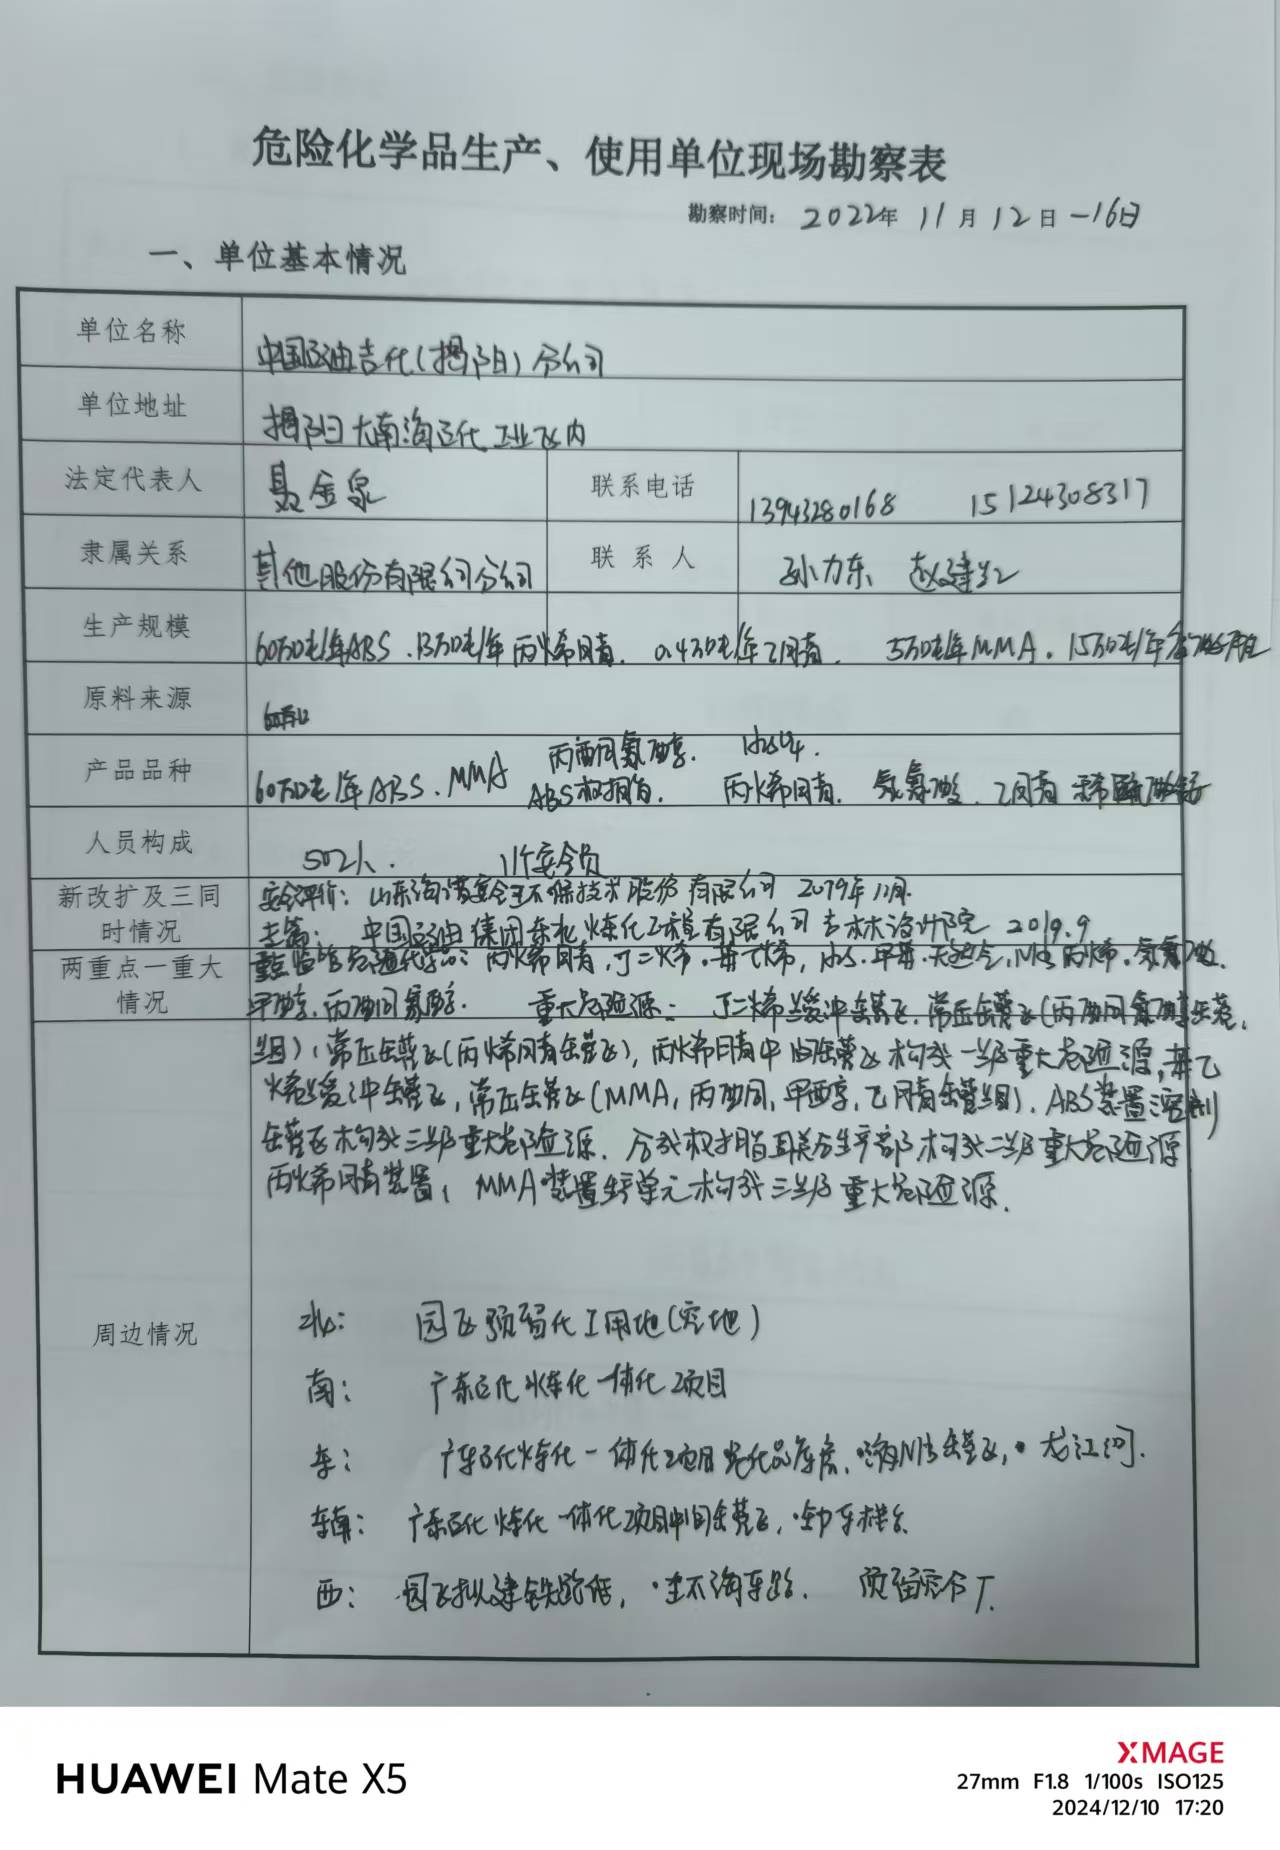 危险化学品生产、使用单位现场勘察表
勘察时间: 2022年 11月 12日-16日
一、单位基本情况
单位名称 中国石油吉化(揭阳)分公司
单位地址 揭阳大南海石化工业区内
法定代表人 聂金泉 联系电话 13943280168 15124308317
隶属关系 其他股份有限公司分公司 联系人 孙力东 赵建
生产规模 60万吨/年ABS、13万吨/年丙烯腈、0.4万吨/年乙腈、5万吨/年MMA、15万吨/年
原料来源
丙酮氰醇、
产品品种 60万吨/年ABS、MMA ABS树脂、丙烯腈、氢氰酸、乙腈
人员构成 502人、 11个安全员
新改扩及三同 安全评价:山东海诺安全环保技术股份有限公司 2019年12月
时情况 中国石油集团东北炼化工程有限公司吉林设计院 2019.9
两重点一重大 重点监管危险化学品:丙烯腈,丁二烯、苯乙烯,H2S、甲苯、天然气,NH3 丙烯、氢氰酸、
情况 甲醇、丙酮氰醇. 重大危险源:丁二烯缓冲罐区,常压罐区(丙酮氰醇罐
组),常压罐区(丙烯腈罐区),丙烯腈中间罐区构成一级重大危险源,苯乙
烯缓冲罐区,常压罐区(MMA,丙酮,甲醇,乙腈罐组),ABS装置溶剂
罐区构成三级重大危险源.合成树脂联合生产部构成二级重大危险源
丙烯腈装置,MMA装置生产单元构成三级重大危险源.
周边情况
北: 园区预留化工用地(空地)
南: 广东石化炼化一体化项目
东: 广东石化炼化一体化项目危化品库房、NH3罐区,龙江河.
东南: 广东石化炼化一体化项目中间罐区,卸车栈台
西: 园区拟建铁路、 预留空分厂.
HUAWEI Mate X5
XMAGE
27mm F1.8 1/100s ISO125
2024/12/10 17:20